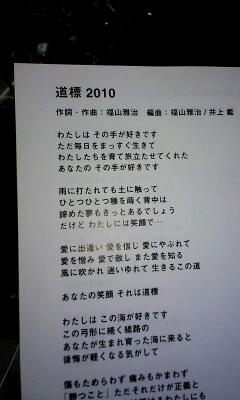 道標 2010
作詞・作曲：福山雅治　編曲：福山雅治 / 井上 鑑
わたしは その手が好きです
ただ毎日をまっすぐ生きて
わたしたちを育て旅立たせてくれた
あなたの その手が好きです
雨に打たれても土に触って
ひとつひとつ種を蒔く背中は
諦めた夢もきっとあるでしょう
だけど わたしには笑顔で…
愛に出逢い 愛を信じ 愛にやぶれて
愛を憎み 愛で赦し また愛を知る
風に吹かれ 迷いゆれて 生きるこの道
あなたの笑顔 それは道標
わたしは この海が好きです
この弓形に続く線路の
あなたが生まれ育った海に来ると
後悔が軽くなる気がして
傷もためらわず 痛みもかまわず
「勝つこと」ただそれだけが正義と